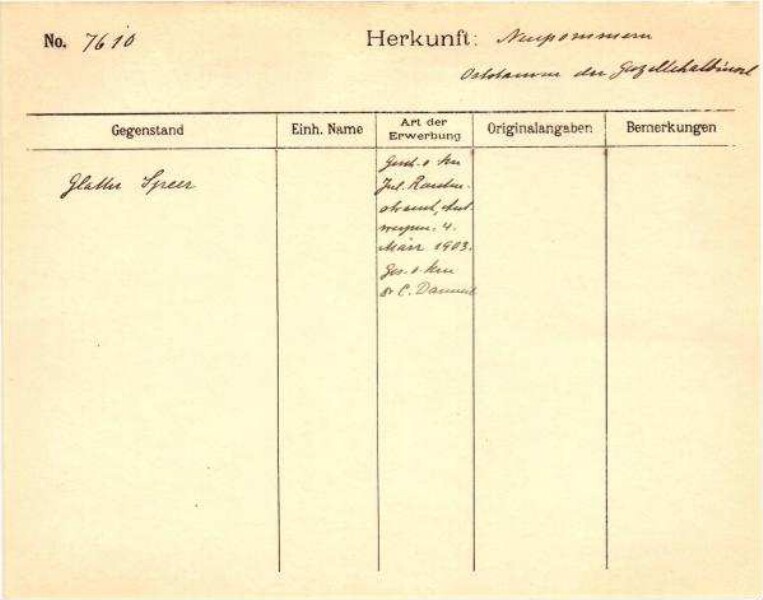 No. 7610 Herkunft: Neupommern
der Gazellehalbinsel
Gegenstand Einh. Name Art der Erwerbung Originalangaben Bemerkungen
Glatter Speer
Gesch. v. Hrn
Jul.
Ant-
werpen. 4.
März 1903.
Ges. v. Hrn
Dr C. Danneil